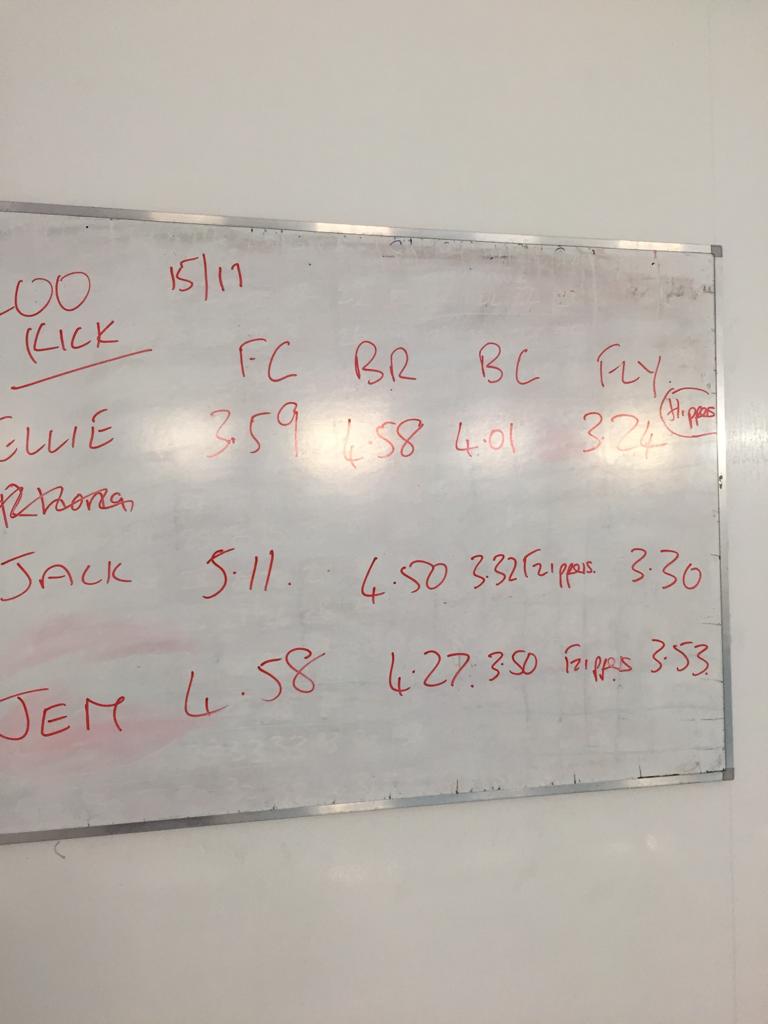 00 15/11
KICK
FC BR BC FLY
ELLIE 3.59 4.58 4.01 3.24 Flippers
JACK 5.11. 4.50 3.32 Flippers. 3.30
JEM 4.58 4.27. 3.50 Flippers 3.53